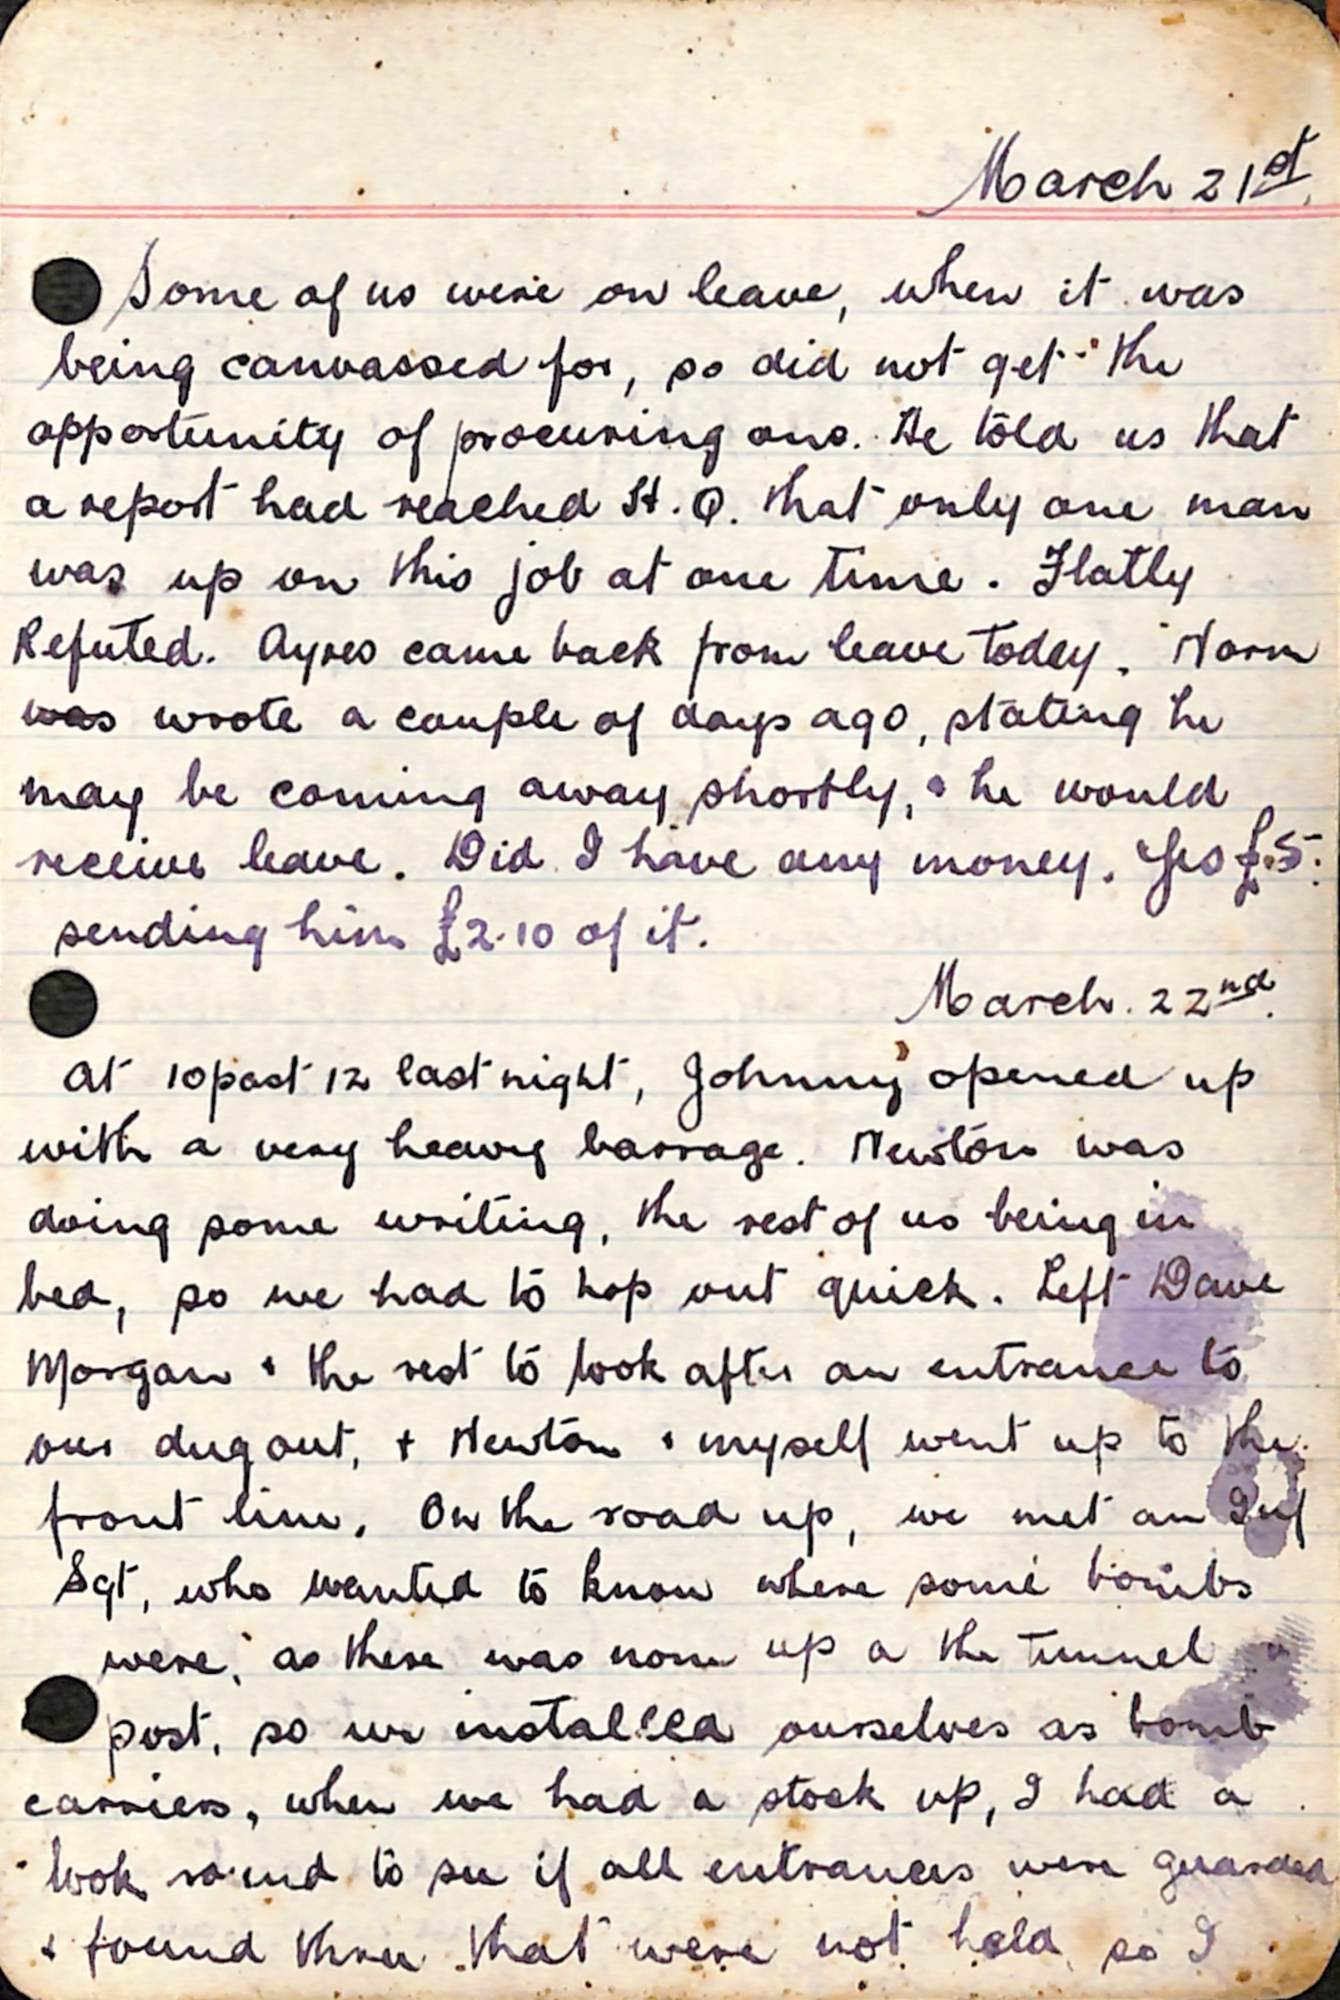 March 21st.
Some of us were on leave, when it was
being canvassed for, so did not get the
opportunity of procuring one. He told us that
a report had reached H.Q. that only one man
was up on this job at one time. Flatly
Refuted. Ayres came back from leave today. Norm
was wrote a couple of days ago, stating he
may be coming away shortly, & he would
receive leave. Did I have any money. Yes £5.
sending him £2.10 of it.
March. 22nd.
At 10 past 12 last night, Johnny opened up
with a very heavy barrage. Newton was
doing some writing, the rest of us being in
bed, so we had to hop out quick. Left Dave
Morgan & the rest to look after an entrance to
our dugout, + Newton & myself went up to the
front line. On the road up, we met an Inf
Sgt, who wanted to know where some bombs
were, as there was none up a the tunnel
post, so we installed ourselves as bomb
carriers, when we had a stock up, I had a
look round to see if all entrances were guarded
& found three that were not held so I